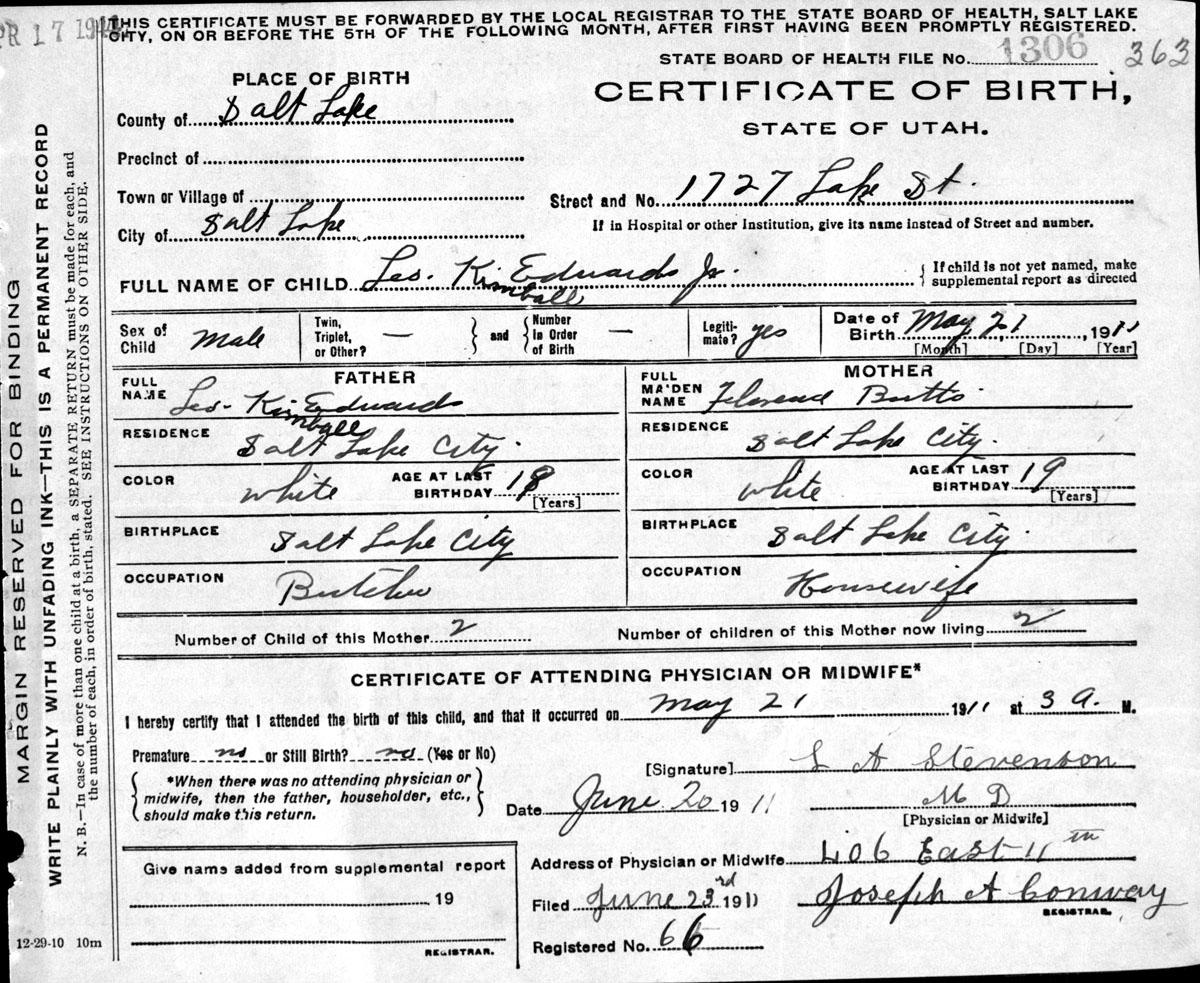 APR 17 194
THIS CERTIFICATE MUST BE FORWARDED BY THE LOCAL REGISTRAR TO THE STATE BOARD OF HEALTH, SALT LAKE
CITY, ON OR BEFORE THE 5TH OF THE FOLLOWING MONTH, AFTER FIRST HAVING BEEN PROMPTLY REGISTERED.
STATE BOARD OF HEALTH FILE No. 1306 363
PLACE OF BIRTH
CERTIFICATE OF BIRTH,
STATE OF UTAH.
County of Salt Lake
Precinct of
Town or Village of
Street and No. 1727 Lake St.
City of Salt Lake
If in Hospital or other Institution, give its name instead of Street and number.
FULL NAME OF CHILD Leo. Kimball Edwards Jr.
{ If child is not yet named, make
supplemental report as directed
Sex of Child Male
Twin, Triplet, or Other? —
and
Number In Order of Birth —
Legiti- mate? yes
Date of Birth May 21, 1911
[Month] [Day] [Year]
FATHER
FULL NAME Leo. Kimball Edwards
RESIDENCE Salt Lake City.
COLOR white AGE AT LAST BIRTHDAY 18
[Years]
BIRTHPLACE Salt Lake City
OCCUPATION Butcher
MOTHER
FULL MAIDEN NAME Florence Butts
RESIDENCE Salt Lake City.
COLOR white AGE AT LAST BIRTHDAY 19
[Years]
BIRTHPLACE Salt Lake City
OCCUPATION Housewife
Number of Child of this Mother 2
Number of children of this Mother now living 2
CERTIFICATE OF ATTENDING PHYSICIAN OR MIDWIFE*
I hereby certify that I attended the birth of this child, and that it occurred on May 21 1911 at 3 A. M.
Premature no or Still Birth? no (Yes or No)
*When there was no attending physician or
midwife, then the father, householder, etc.,
should make this return.
[Signature] L A Stevenson
Date June 20 1911
M D
[Physician or Midwife]
Address of Physician or Midwife 406 East 11th
Filed June 23rd 1911 Joseph A Conway
REGISTRAR.
Registered No. 66
Give name added from supplemental report
19
REGISTRAR.
12-29-10 10m
MARGIN RESERVED FOR BINDING
WRITE PLAINLY WITH UNFADING INK—THIS IS A PERMANENT RECORD
N. B.—In case of more than one child at a birth, a SEPARATE RETURN must be made for each, and
the number of each, in order of birth, stated. SEE INSTRUCTIONS ON OTHER SIDE.